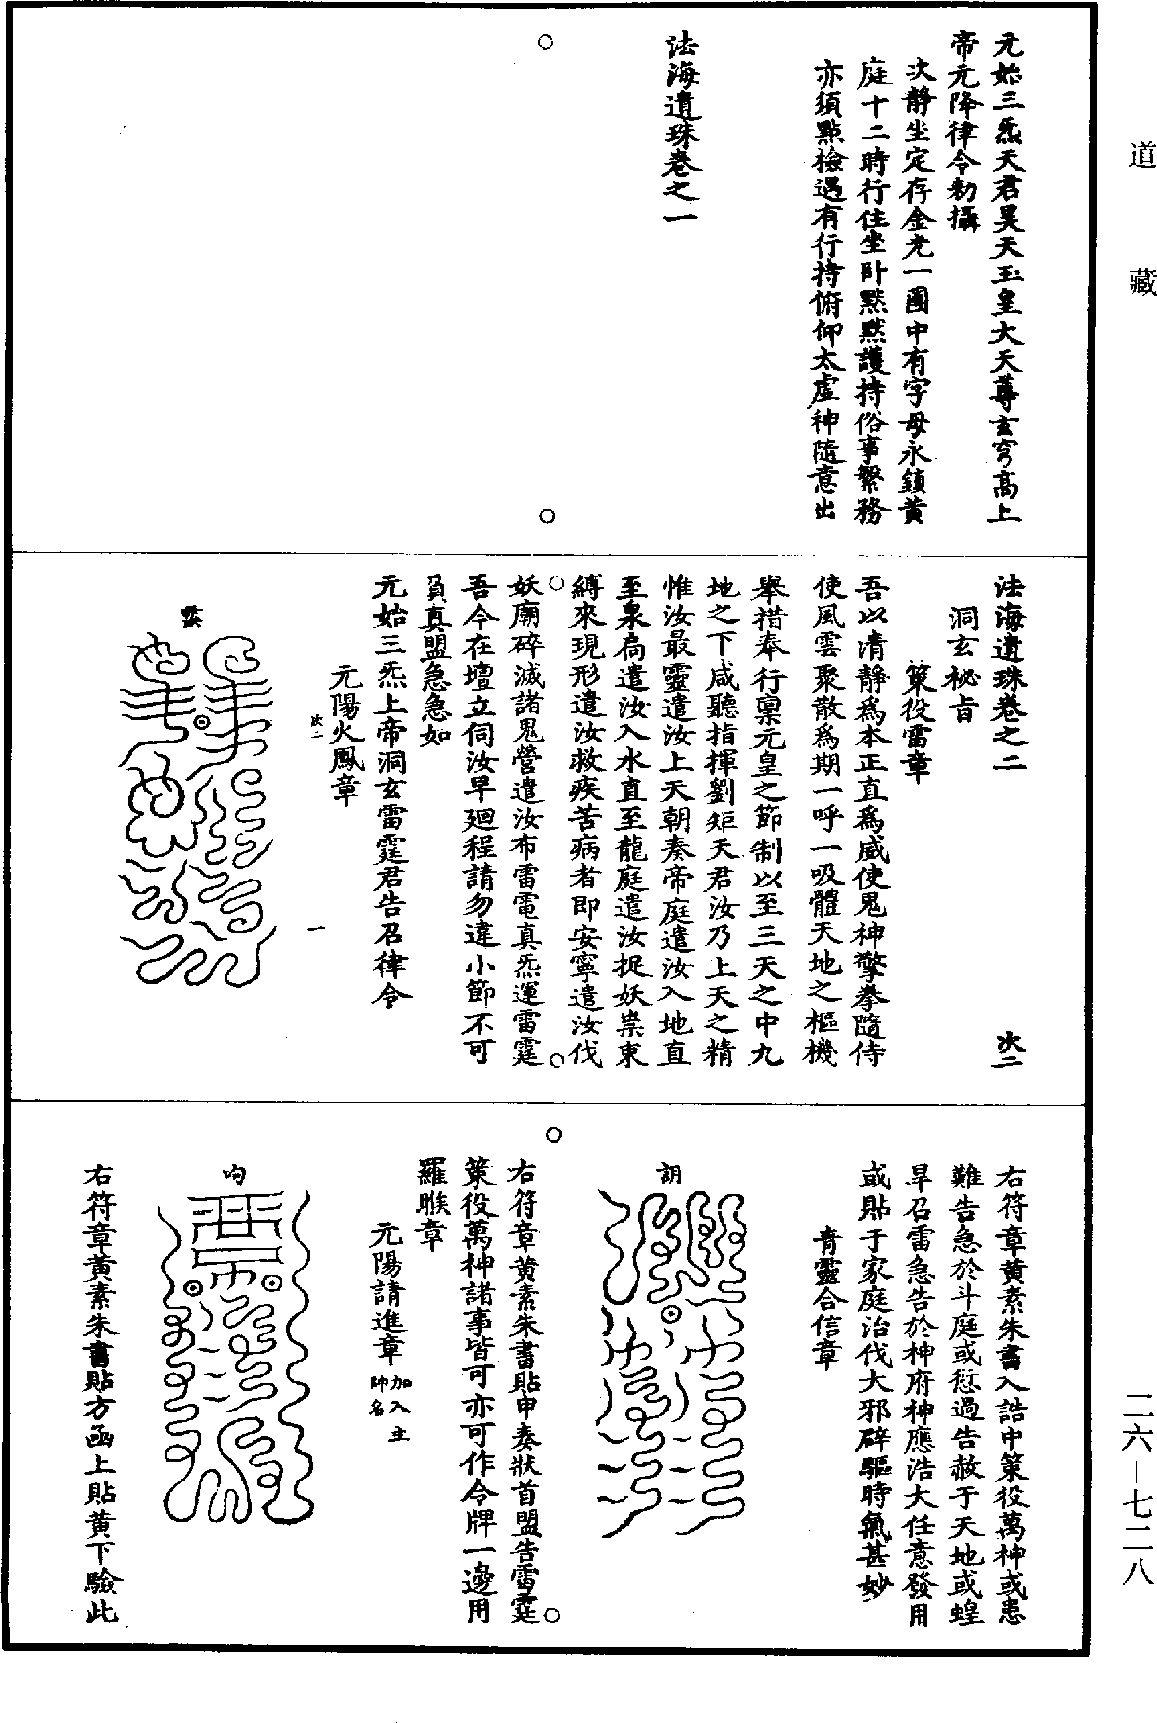 道藏
元始三炁天君昊天玉皇大天尊玄穹高上
帝元降律令勑攝
次靜坐定存金光一團中有字母永鎮黃
庭十二時行住坐卧黙黙護持俗事繄務
亦須點檢遇有行持俯仰太虛神隨意出
法海遺珠卷之一
法海遺珠卷之二
次二
洞玄秘旨
策役雷章
吾以清靜為本正直為威使鬼神擎拳隨侍
使風雲聚散為期一呼一吸體天地之樞機
舉措奉行稟元皇之節制以至三天之中九
地之下咸聽指揮劉矩天君汝乃上天之精
惟汝最靈遣汝上天朝奏帝庭遣汝入地直
至泉扃遣汝入水直至龍庭遣汝捉妖祟束
縛來現形遣汝救疾苦病者即安寧遣汝伐
妖廟碎滅諸鬼營遣汝布雷電真炁運雷霆
吾今在壇立伺汝早廻程請勿違小節不可
負真盟急急如
元始三炁上帝洞玄雷霆君告召律令
元陽火鳳章
次二
一
右符章黃素朱書入誥中策役萬神或患
難告急於斗庭或愆過告赦于天地或蝗
旱召雷急告於神府神應浩大任意發用
或貼于家庭治伐大邪辟驅時氣甚妙
青靈合信章
右符章黃素朱書貼申奏狀首盟告雷霆
策役萬神諸事皆可亦可作令牌一邊用
羅睺章
元陽請進章
加入主
帥名
右符章黃素朱書貼方函上貼黃下驗此
二六—七二八